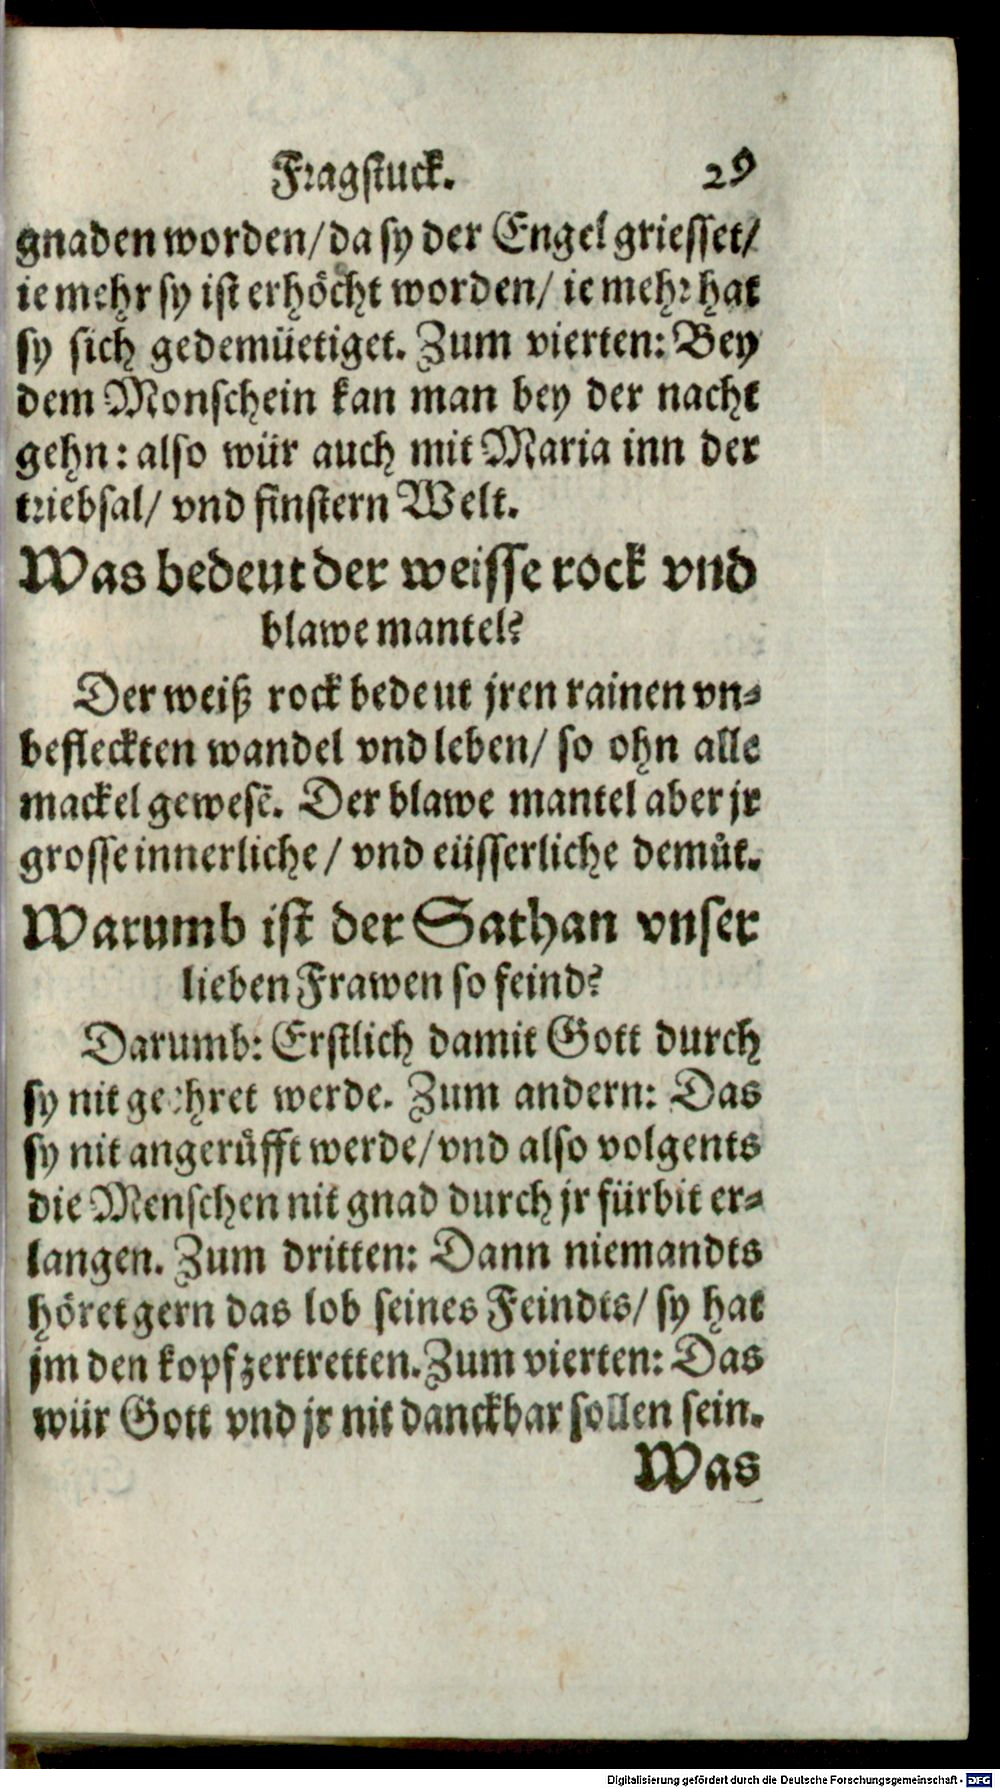 Fragstuck. 29
gnaden worden/ da sy der Engel griesset/
ie mehr sy ist erhöcht worden/ ie mehr hat
sy sich gedemüetiget. Zum vierten: Bey
dem Monschein kan man bey der nacht
gehn: also wür auch mit Maria inn der
triebsal/ vnd finstern Welt.
Was bedeut der weisse rock vnd
blawe mantel?
Der weiß rock bedeut jren rainen vn⸗
befleckten wandel vnd leben/ so ohn alle
mackel gewesẽ. Der blawe mantel aber jr
grosse innerliche/ vnd eüsserliche demůt.
Warumb ist der Sathan vnser
lieben Frawen so feind?
Darumb: Erstlich damit Gott durch
sy nit geehret werde. Zum andern: Das
sy nit angerůfft werde/ vnd also volgents
die Menschen nit gnad durch jr fürbit er⸗
langen. Zum dritten: Dann niemandts
höret gern das lob seines Feindts/ sy hat
jm den kopf zertretten. Zum vierten: Das
wür Gott vnd jr nit danckbar sollen sein.
Was
Digitalisierung gefördert durch die Deutsche Forschungsgemeinschaft - DFG